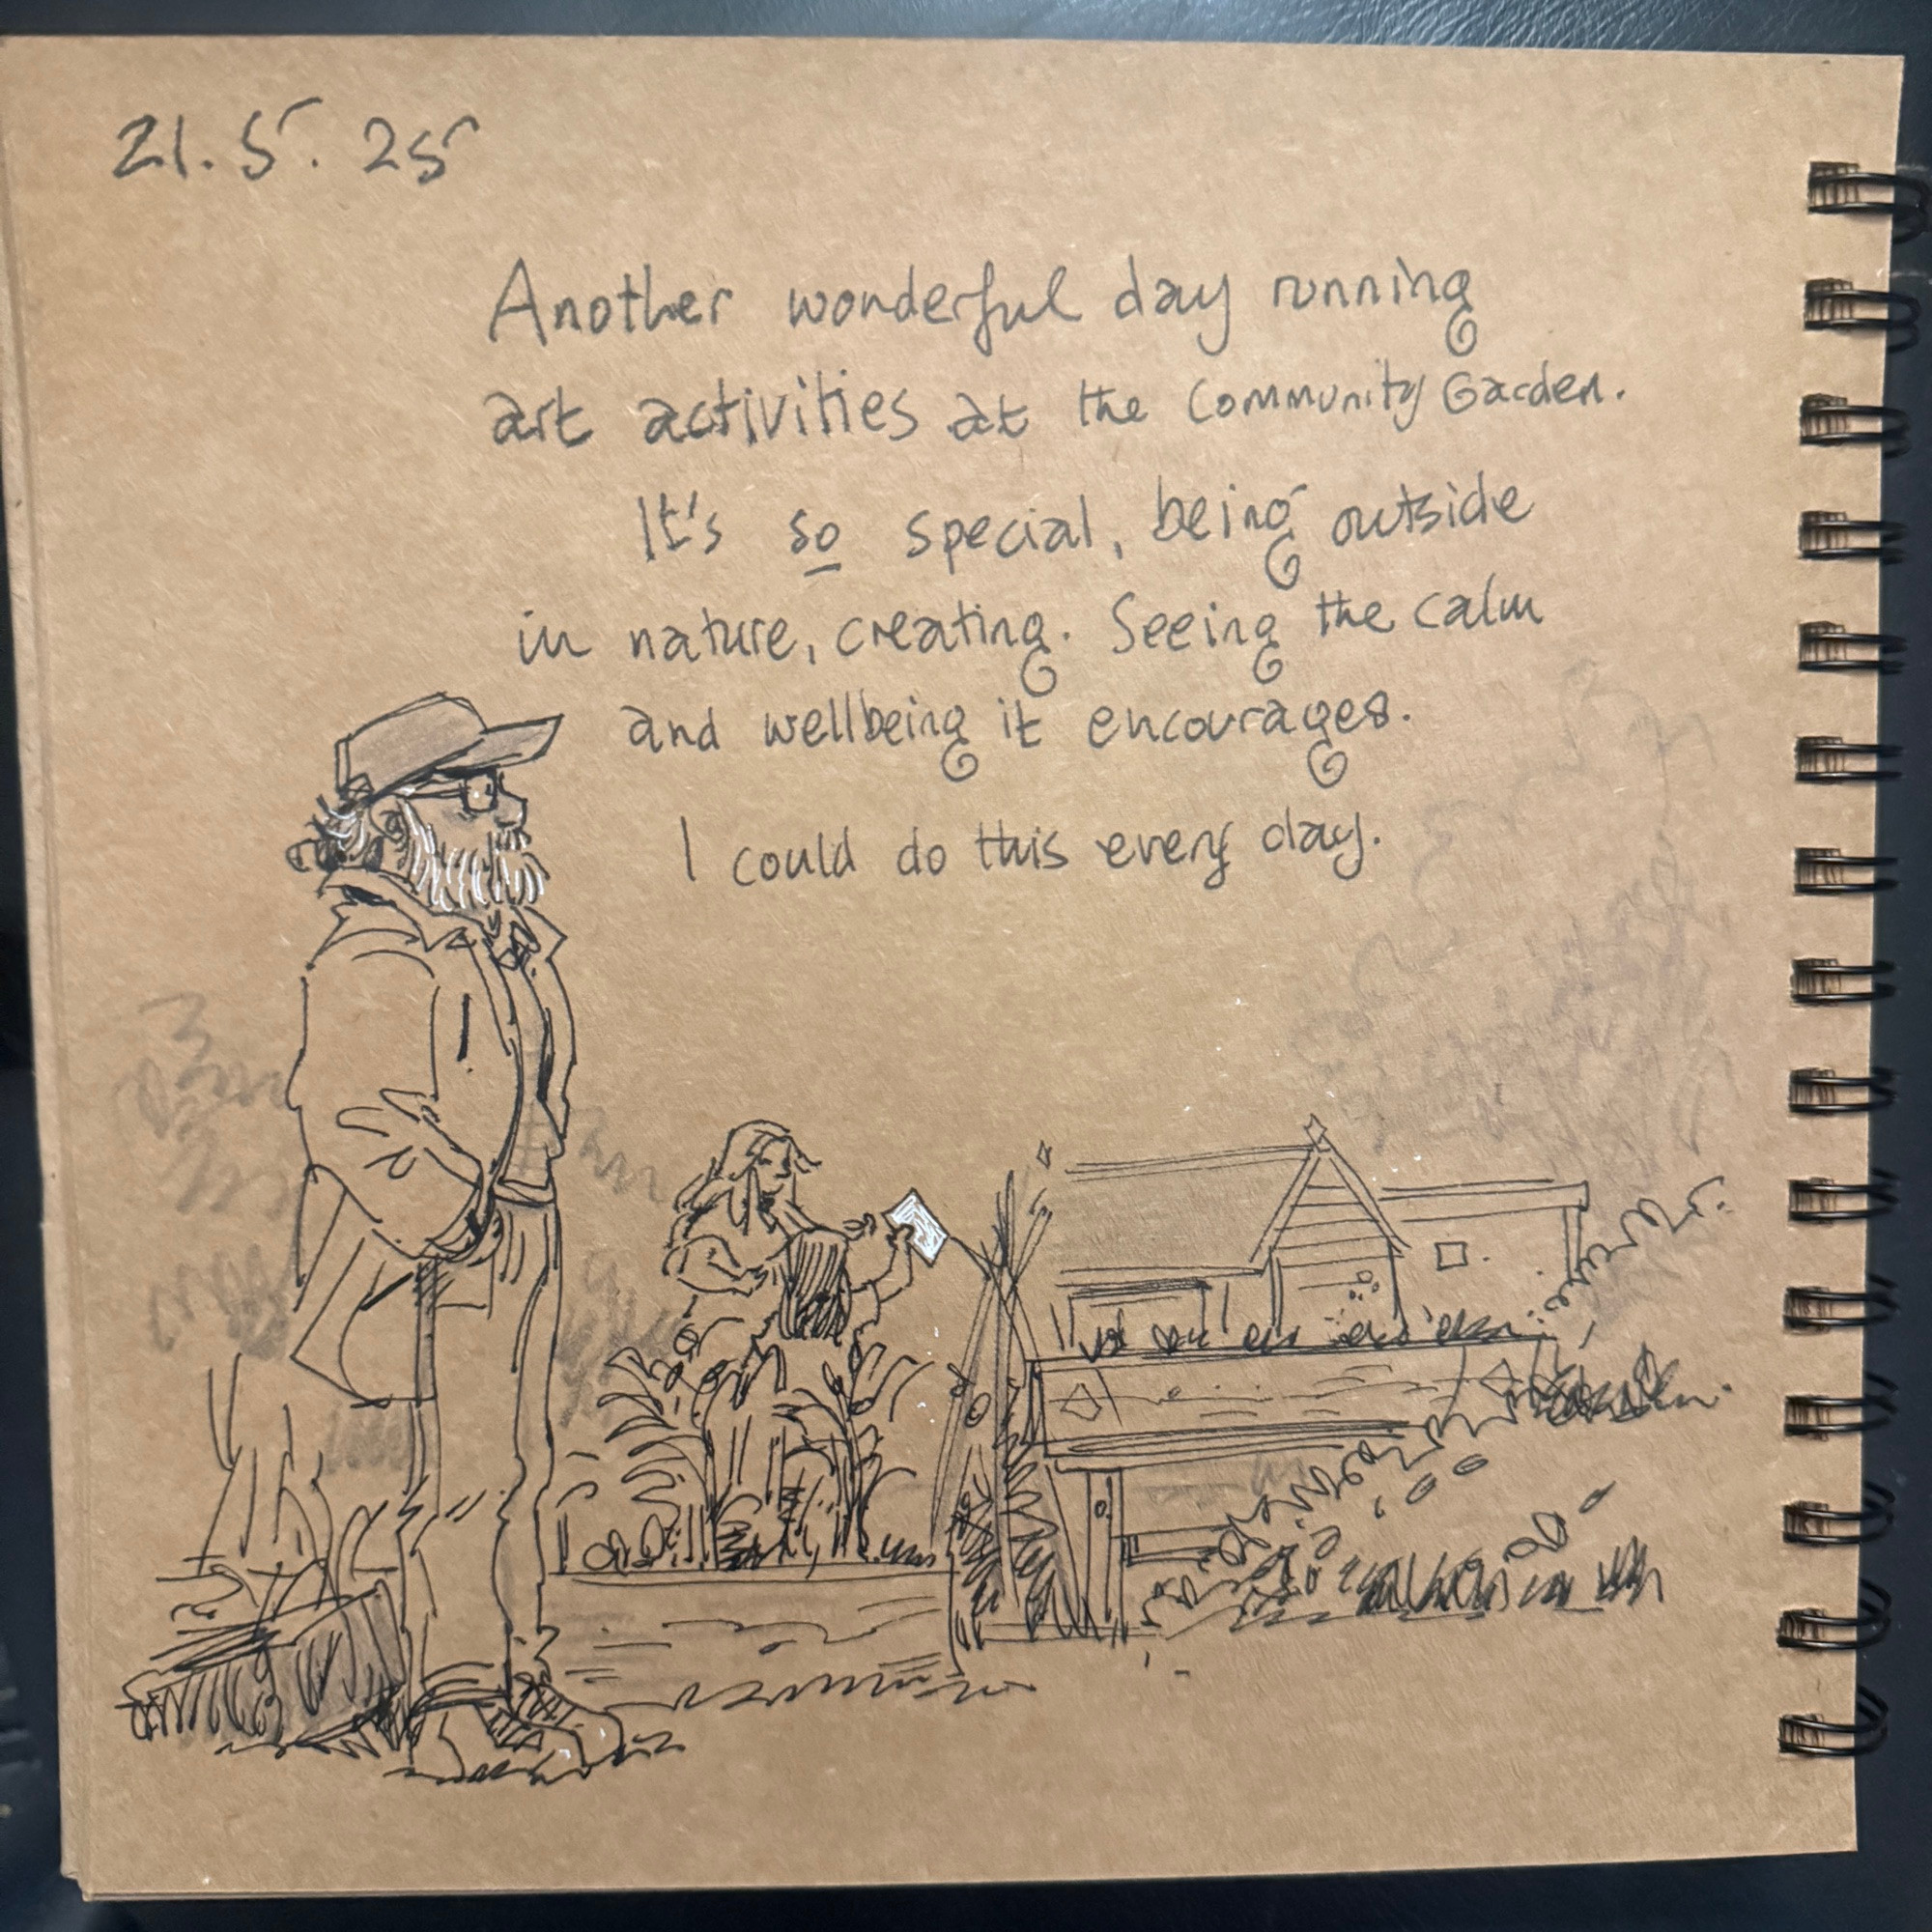 21.5.25
Another wonderful day running
art activities at the Community Garden.
It's so special, being outside
in nature, creating. Seeing the calm
and wellbeing it encourages.
I could do this every day.